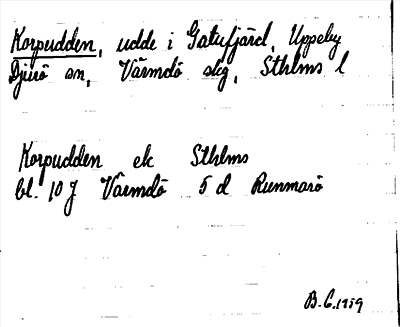 Korpudden, udde i Gatufjärd, Uppeby
Djurö sn, Värmdö skg, Sthlms l
Korpudden ek Sthlms
bl. 10 J Värmdö 5 d Runmarö
B.G. 1959